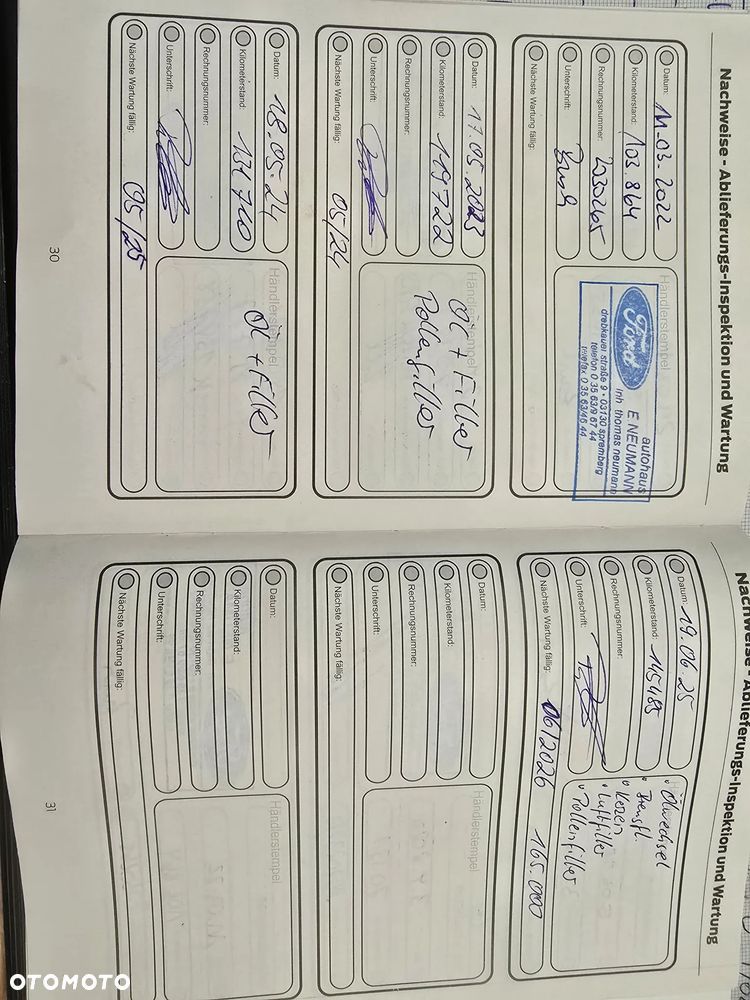 Nachweise - Ablieferungs-Inspektion und Wartung
Datum: 11.03.2022
Kilometerstand: 103.864
Rechnungsnummer: 2030265
Unterschrift:
Nächste Wartung fällig:
Händlerstempel
Ford
autohaus
E. NEUMANN
inh. thomas neumann
drebkauer straße 9 • 03130 spremberg
telefon 0 35 63/9 67 44
telefax 0 35 63/46 44
Datum: 17.05.2023
Kilometerstand: 119722
Rechnungsnummer:
Unterschrift:
Nächste Wartung fällig: 05/24
Händlerstempel
Öl + Filter
Pollenfilter
Datum: 18.05.24
Kilometerstand: 131710
Rechnungsnummer:
Unterschrift:
Nächste Wartung fällig: 05/25
Händlerstempel
Öl + Filter
30
Nachweise - Ablieferungs-Inspektion und Wartung
Datum: 19.06.25
Kilometerstand: 145485
Rechnungsnummer:
Unterschrift:
Nächste Wartung fällig: 06/2026 165.000
• Ölwechsel
• Bremsfl.
• Kerzen
• Luftfilter
• Pollenfilter
Datum:
Kilometerstand:
Rechnungsnummer:
Unterschrift:
Nächste Wartung fällig:
Händlerstempel
Datum:
Kilometerstand:
Rechnungsnummer:
Unterschrift:
Nächste Wartung fällig:
Händlerstempel
31
OTOMOTO